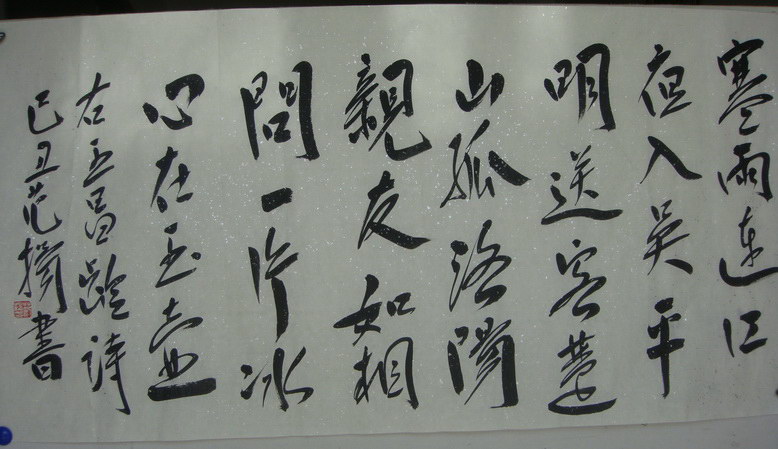 寒雨連江
夜入吳平
明送客楚
山孤洛陽
親友如相
問一片冰
心在玉壺
右王昌齡詩
己丑范書